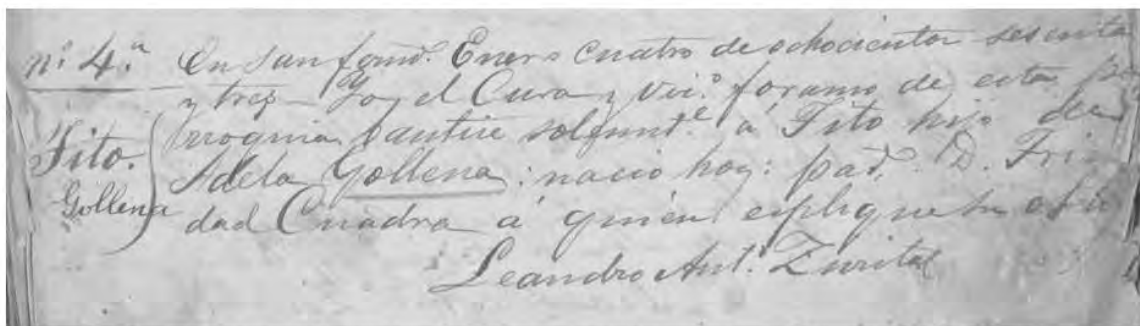 nº 4.ª En San fernd. Enero cuatro de ochocientos sesenta
y tres — Yo el Cura y Vic.º foraneo de esta pa
rroquia bautice solemnt.e á Tito hijo de
Tito. Adela Gollena: nacio hoy: pad. D. Trini
Gollena dad Cuadra á quien esplique su
Leandro Ant.º Zurita